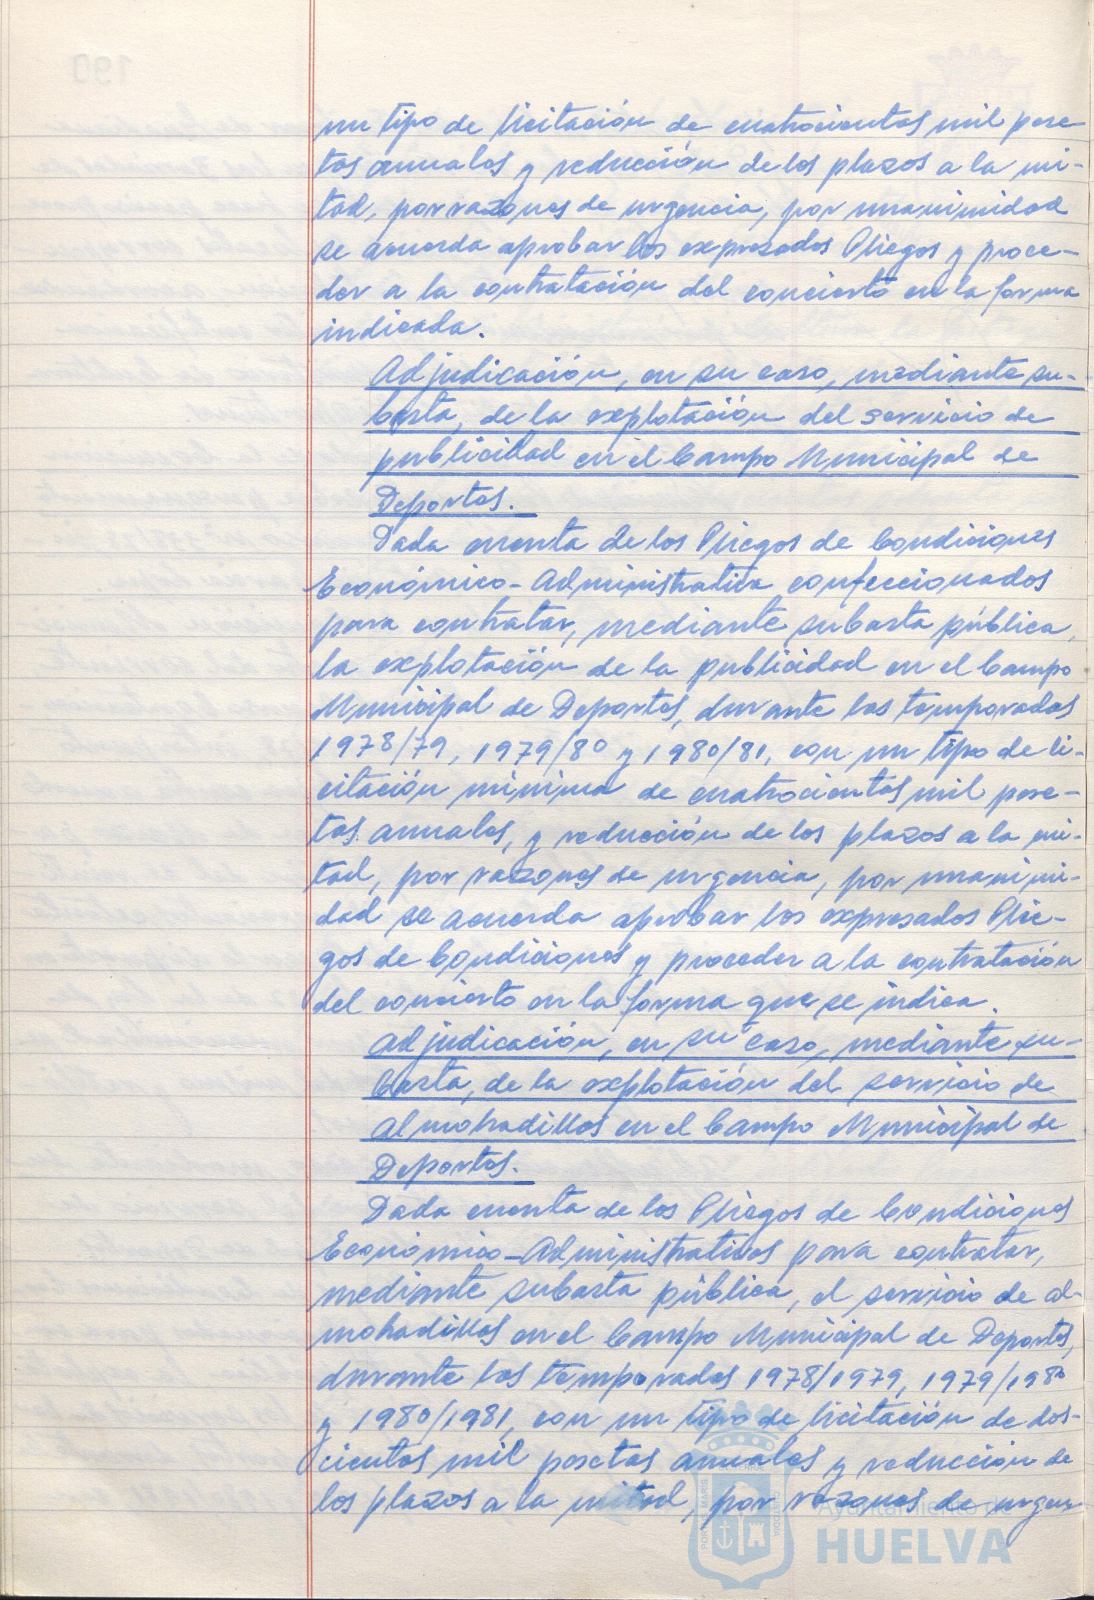 un tipo de licitación de cuatrocientas mil pese-
tas anuales y reducción de los plazos a la mi-
tad, por razones de urgencia, por unanimidad
se acuerda aprobar los expresados Pliegos y proce-
der a la contratación del concierto en la forma
indicada.
Adjudicación, en su caso, mediante su-
basta, de la explotación del servicio de
publicidad en el Campo Municipal de
Deportes.
Dada cuenta de los Pliegos de Condiciones
Económico-Administrativa confeccionados
para contratar, mediante subasta pública,
la explotación de la publicidad en el Campo
Municipal de Deportes, durante las temporadas
1978/79, 1979/80 y 1980/81, con un tipo de li-
citación mínima de cuatrocientas mil pese-
tas anuales, y reducción de los plazos a la mi-
tad, por razones de urgencia, por unanimi-
dad se acuerda aprobar los expresados Plie-
gos de Condiciones y proceder a la contratación
del concierto en la forma que se indica.
Adjudicación, en su caso, mediante su-
basta, de la explotación del servicio de
almohadillas en el Campo Municipal de
Deportes.
Dada cuenta de los Pliegos de Condiciones
Económico-Administrativos para contratar,
mediante subasta pública, el servicio de al-
mohadillas en el Campo Municipal de Deportes,
durante las temporadas 1978/1979, 1979/1980
y 1980/1981, con un tipo de licitación de dos-
cientas mil pesetas anuales y reducción de
los plazos a la mitad, por razones de urgen-
Ayuntamiento de
HUELVA